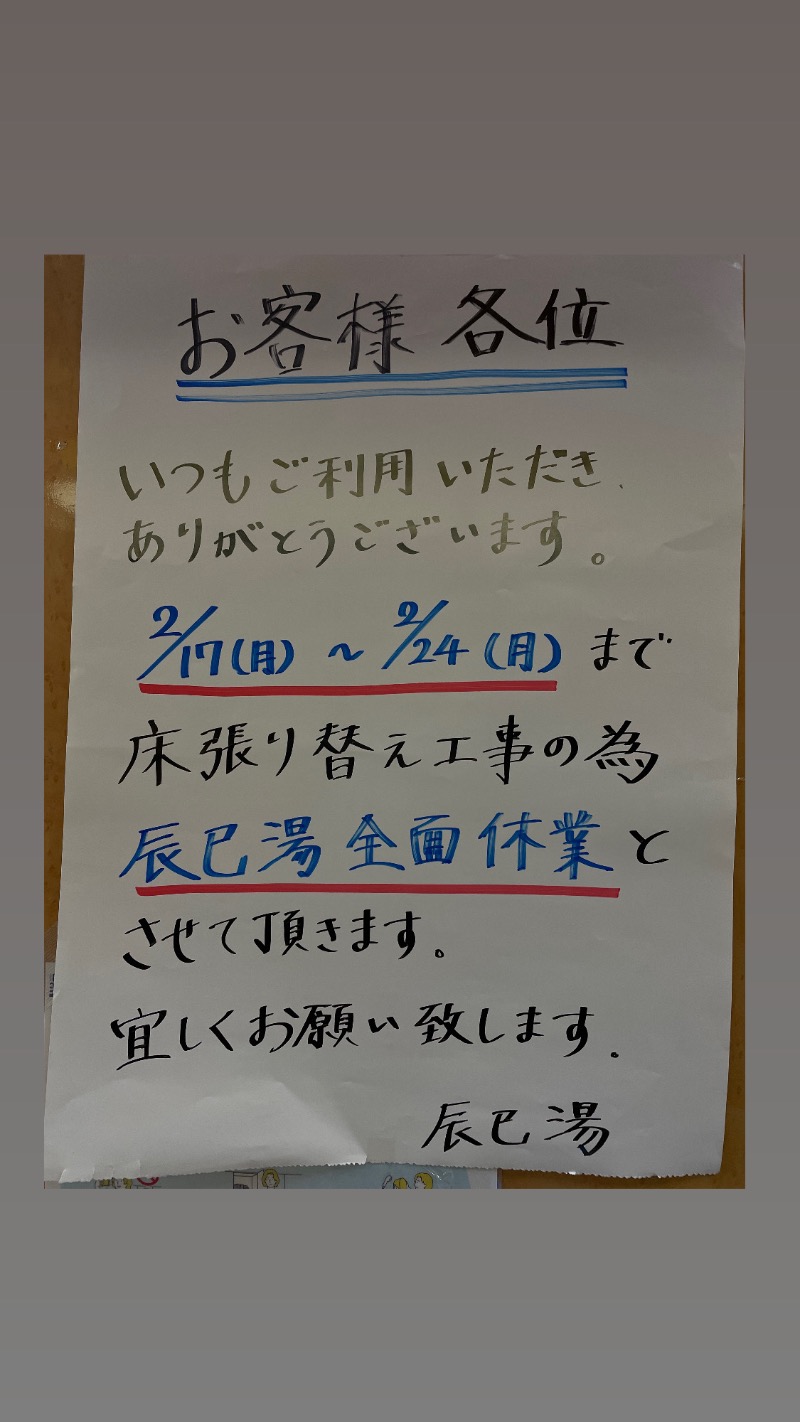 お客様 各位
いつもご利用いただき、
ありがとうございます。
2/17(月) ~ 2/24(月)まで
床張り替え工事の為
辰巳湯 全面休業と
させて頂きます。
宜しくお願い致します.
辰巳湯